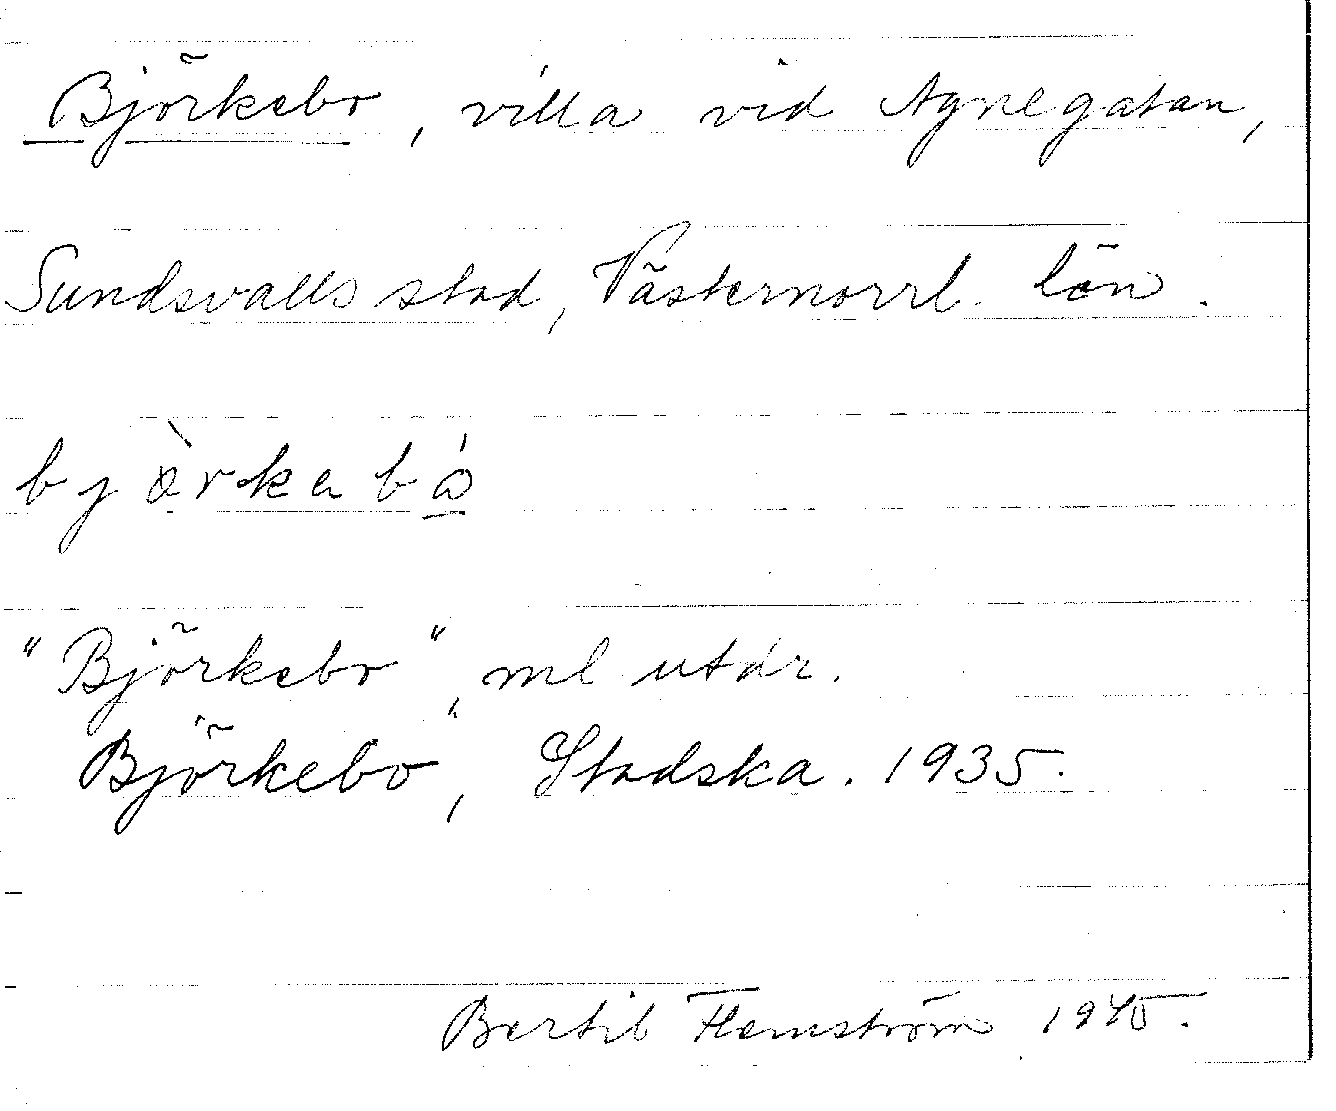 Björkebo, villa vid Agnegatan,
Sundsvalls stad, Västernorrl. län.
bjòrkabó
"Björkebo", ml utdr.
Björkebo", Stadska. 1935.
Bertil Flemström 1945.